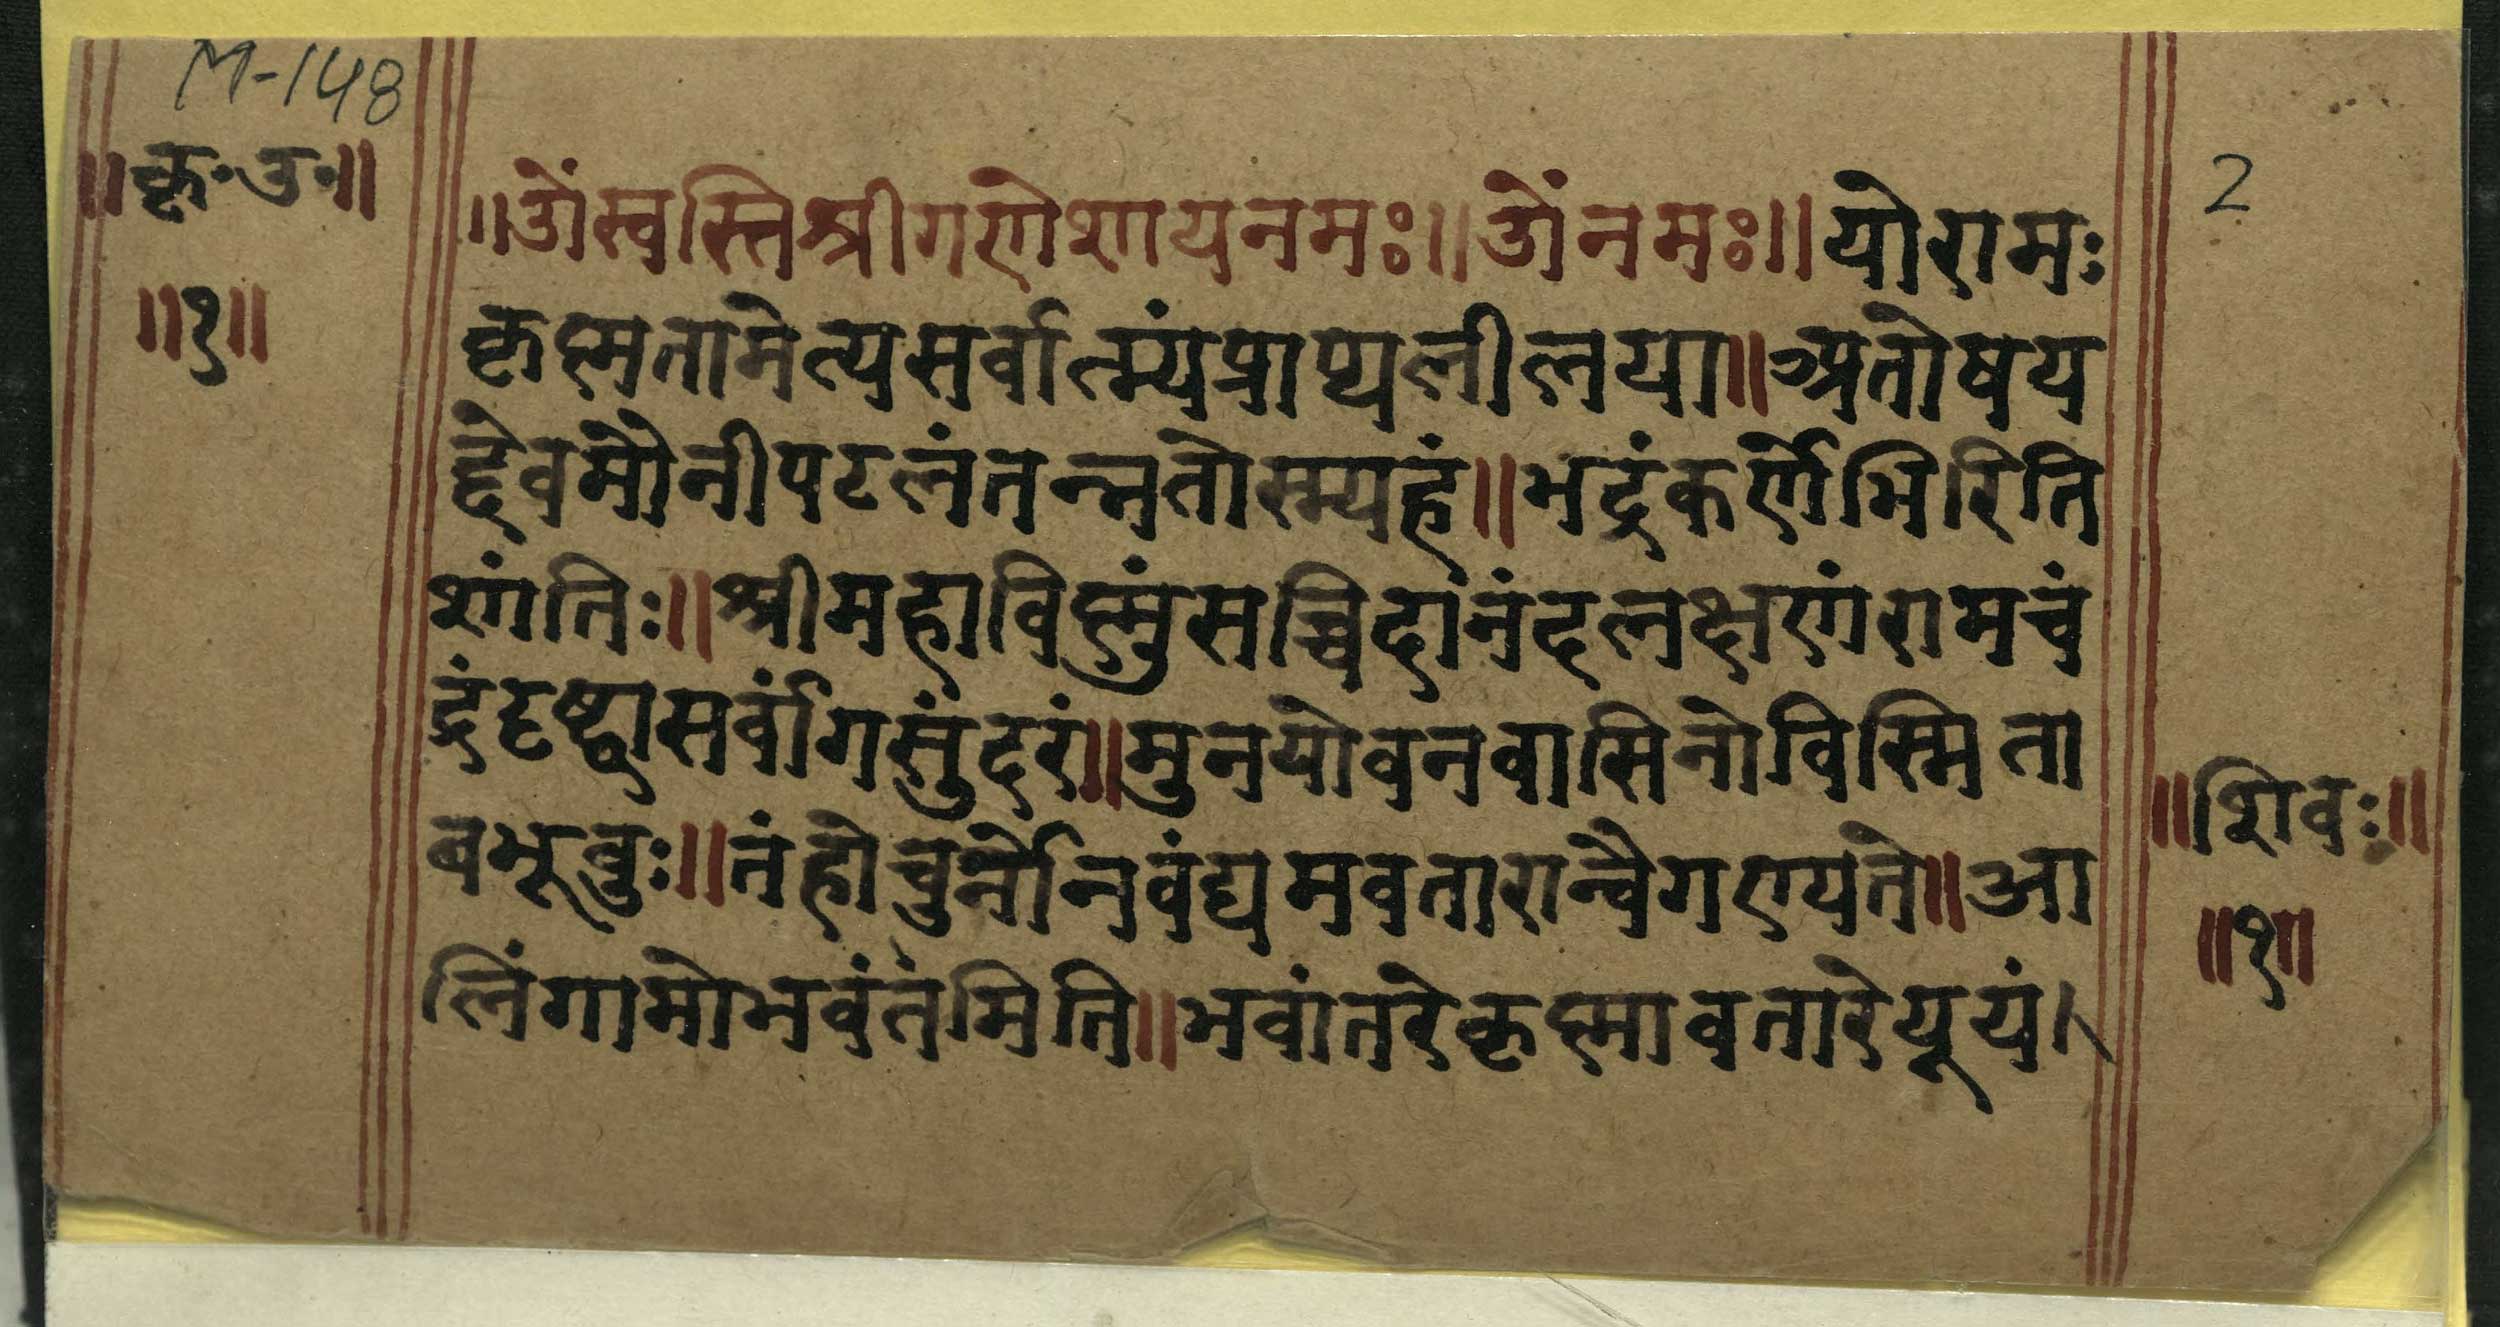 M-148
॥कृ॰उ॰॥
॥१॥
2
॥ओंस्वस्तिश्रीगणेशायनमः॥ओंनमः॥योरामः
कृष्णतामेत्यसर्वात्म्यंप्राप्यलीलया॥अतोषय
द्देवमौनीपटलंतन्नतोस्म्यहं॥भद्रंकर्णेभिरिति
शांतिः॥श्रीमहाविष्णुंसच्चिदांनंदलक्षणंरामचं
द्रंदृष्ट्वासर्वांगसुंदरं॥मुनयोवनवासिनोविस्मिता
बभूवुः॥तंहोचुर्नोनवंद्यमवतारान्वैगण्यते॥आ
लिंगामोभवंतमिति॥भवांतरेकृष्णावतारेयूयं।
॥शिवः॥
॥१॥